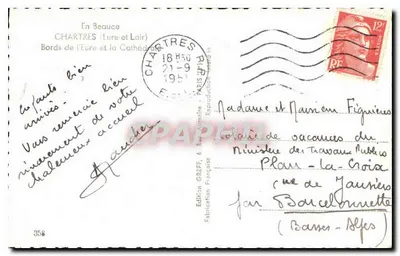 En Beauce
CHARTRES (Eure et Loir)
Bords de l'Eure et la Cathédrale
CHARTRES R.P.
18H30
21-9
12F
RF
Enfants bien
arrivés.
Vous remercie bien
sincèrement de votre
chaleureux accueil
Madame et Monsieur Figuières
colonie de vacances du
Ministère des Travaux Publics
Plan-la-Croix
Cne de Jausiers
par Barcelonnette
(Basses-Alpes)
Fabrication Française
358